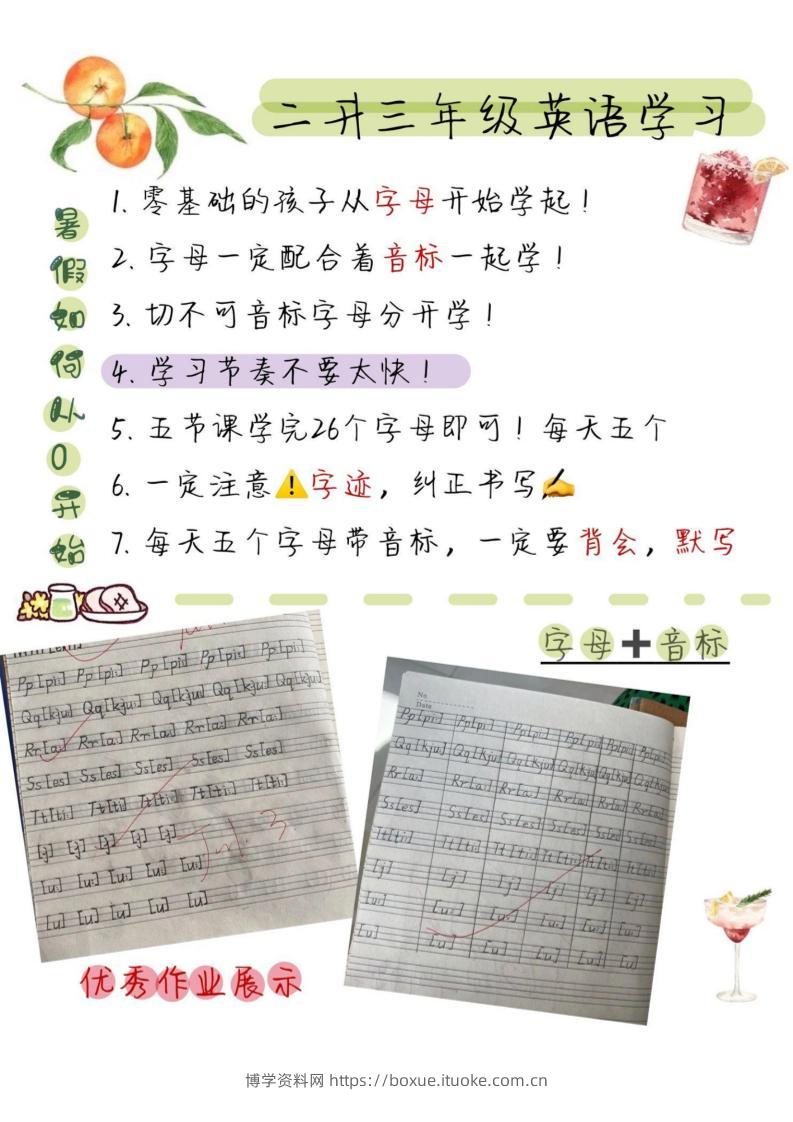 二升三年级英语学习
暑假如何从0开始
1. 零基础的孩子从字母开始学起！
2. 字母一定配合着音标一起学！
3. 切不可音标字母分开学！
4. 学习节奏不要太快！
5. 五节课学完26个字母即可！每天五个
6. 一定注意⚠️字迹，纠正书写✍️
7. 每天五个字母带音标，一定要背会，默写
字母➕音标
Pp[pi:] Pp[pi:] Pp[pi:] Pp[pi:] Pp[pi:]
Qq[kju:] Qq[kju:] Qq[kju:] Qq[kju:] Qq[kju:]
Rr[a:] Rr[a:] Rr[a:] Rr[a:] Rr[a:]
Ss[es] Ss[es] Ss[es] Ss[es] Ss[es]
Tt[ti:] Tt[ti:] Tt[ti:] Tt[ti:] Tt[ti:]
[j] [j] [j] [j] [j]
[u:] [u:] [u:] [u:] [u:]
[u] [u] [u] [u] [u]
No.
Date
Pp[pi:] Pp[pi:] Pp[pi:] Pp[pi:] Pp[pi:] Pp[pi:]
Qq[kju:] Qq[kju:] Qq[kju:] Qq[kju:] Qq[kju:] Qq[kju:]
Rr[a:] Rr[a:] Rr[a:] Rr[a:] Rr[a:] Rr[a:]
Ss[es] Ss[es] Ss[es] Ss[es] Ss[es] Ss[es]
Tt[ti:] Tt[ti:] Tt[ti:] Tt[ti:] Tt[ti:] Tt[ti:]
[j] [j] [j] [j] [j] [j]
[u:] [u:] [u:] [u:] [u:] [u:]
[u] [u] [u] [u] [u] [u]
优秀作业展示
博学资料网 https://boxue.ituoke.com.cn